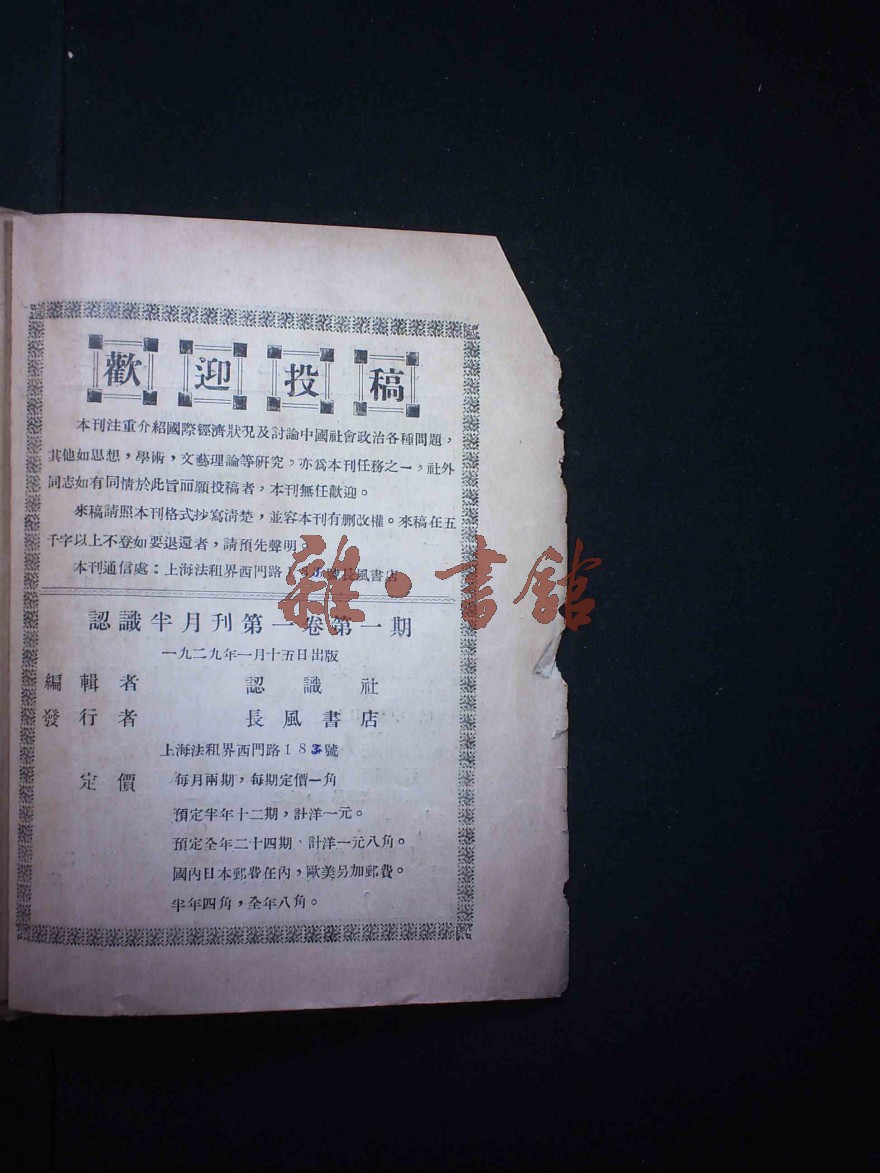 歡迎投稿
本刊注重介紹國際經濟狀况及討論中國社會政治各種問題，
其他如思想，學術，文藝理論等研究，亦爲本刊任務之一，社外
同志如有同情於此旨而願投稿者，本刊無任歡迎。
來稿請照本刊格式抄寫淸楚，並容本刊有删改權。來稿在五
千字以上不登如要退還者，請預先聲明。
本刊通信處：上海法租界西門路183號長風書店
雜·書館
認識半月刊第一卷第一期
一九二九年一月十五日出版
編輯者 認識社
發行者 長風書店
上海法租界西門路183號
定價 每月兩期，每期定價一角
預定半年十二期，計洋一元。
預定全年二十四期、計洋一元八角。
國內日本郵費在內，歐美另加郵費。
半年四角，全年八角。